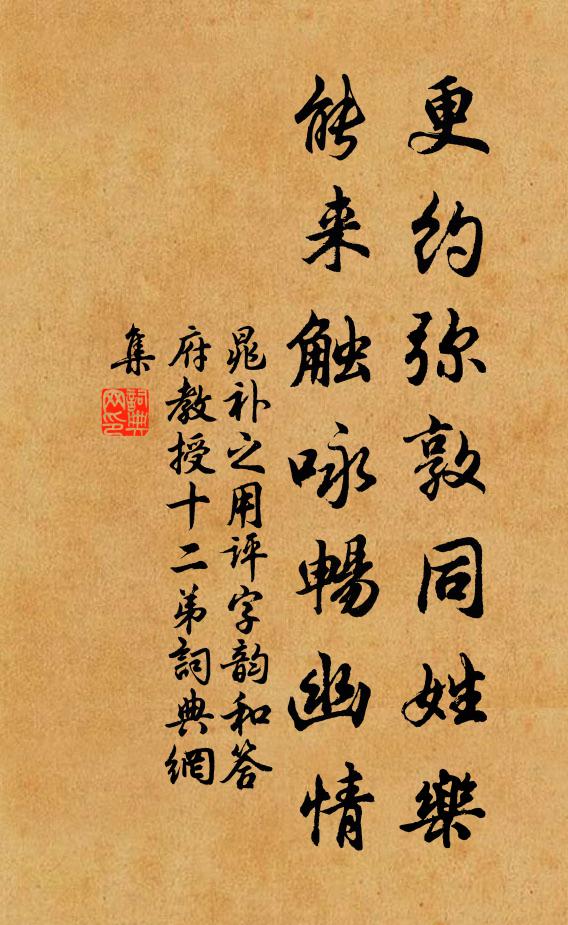 更约弥敦同姓樂
能来触咏暢幽情
晁补之用评字韵和答
府教授十二弟詞典網
集
詞典
网印